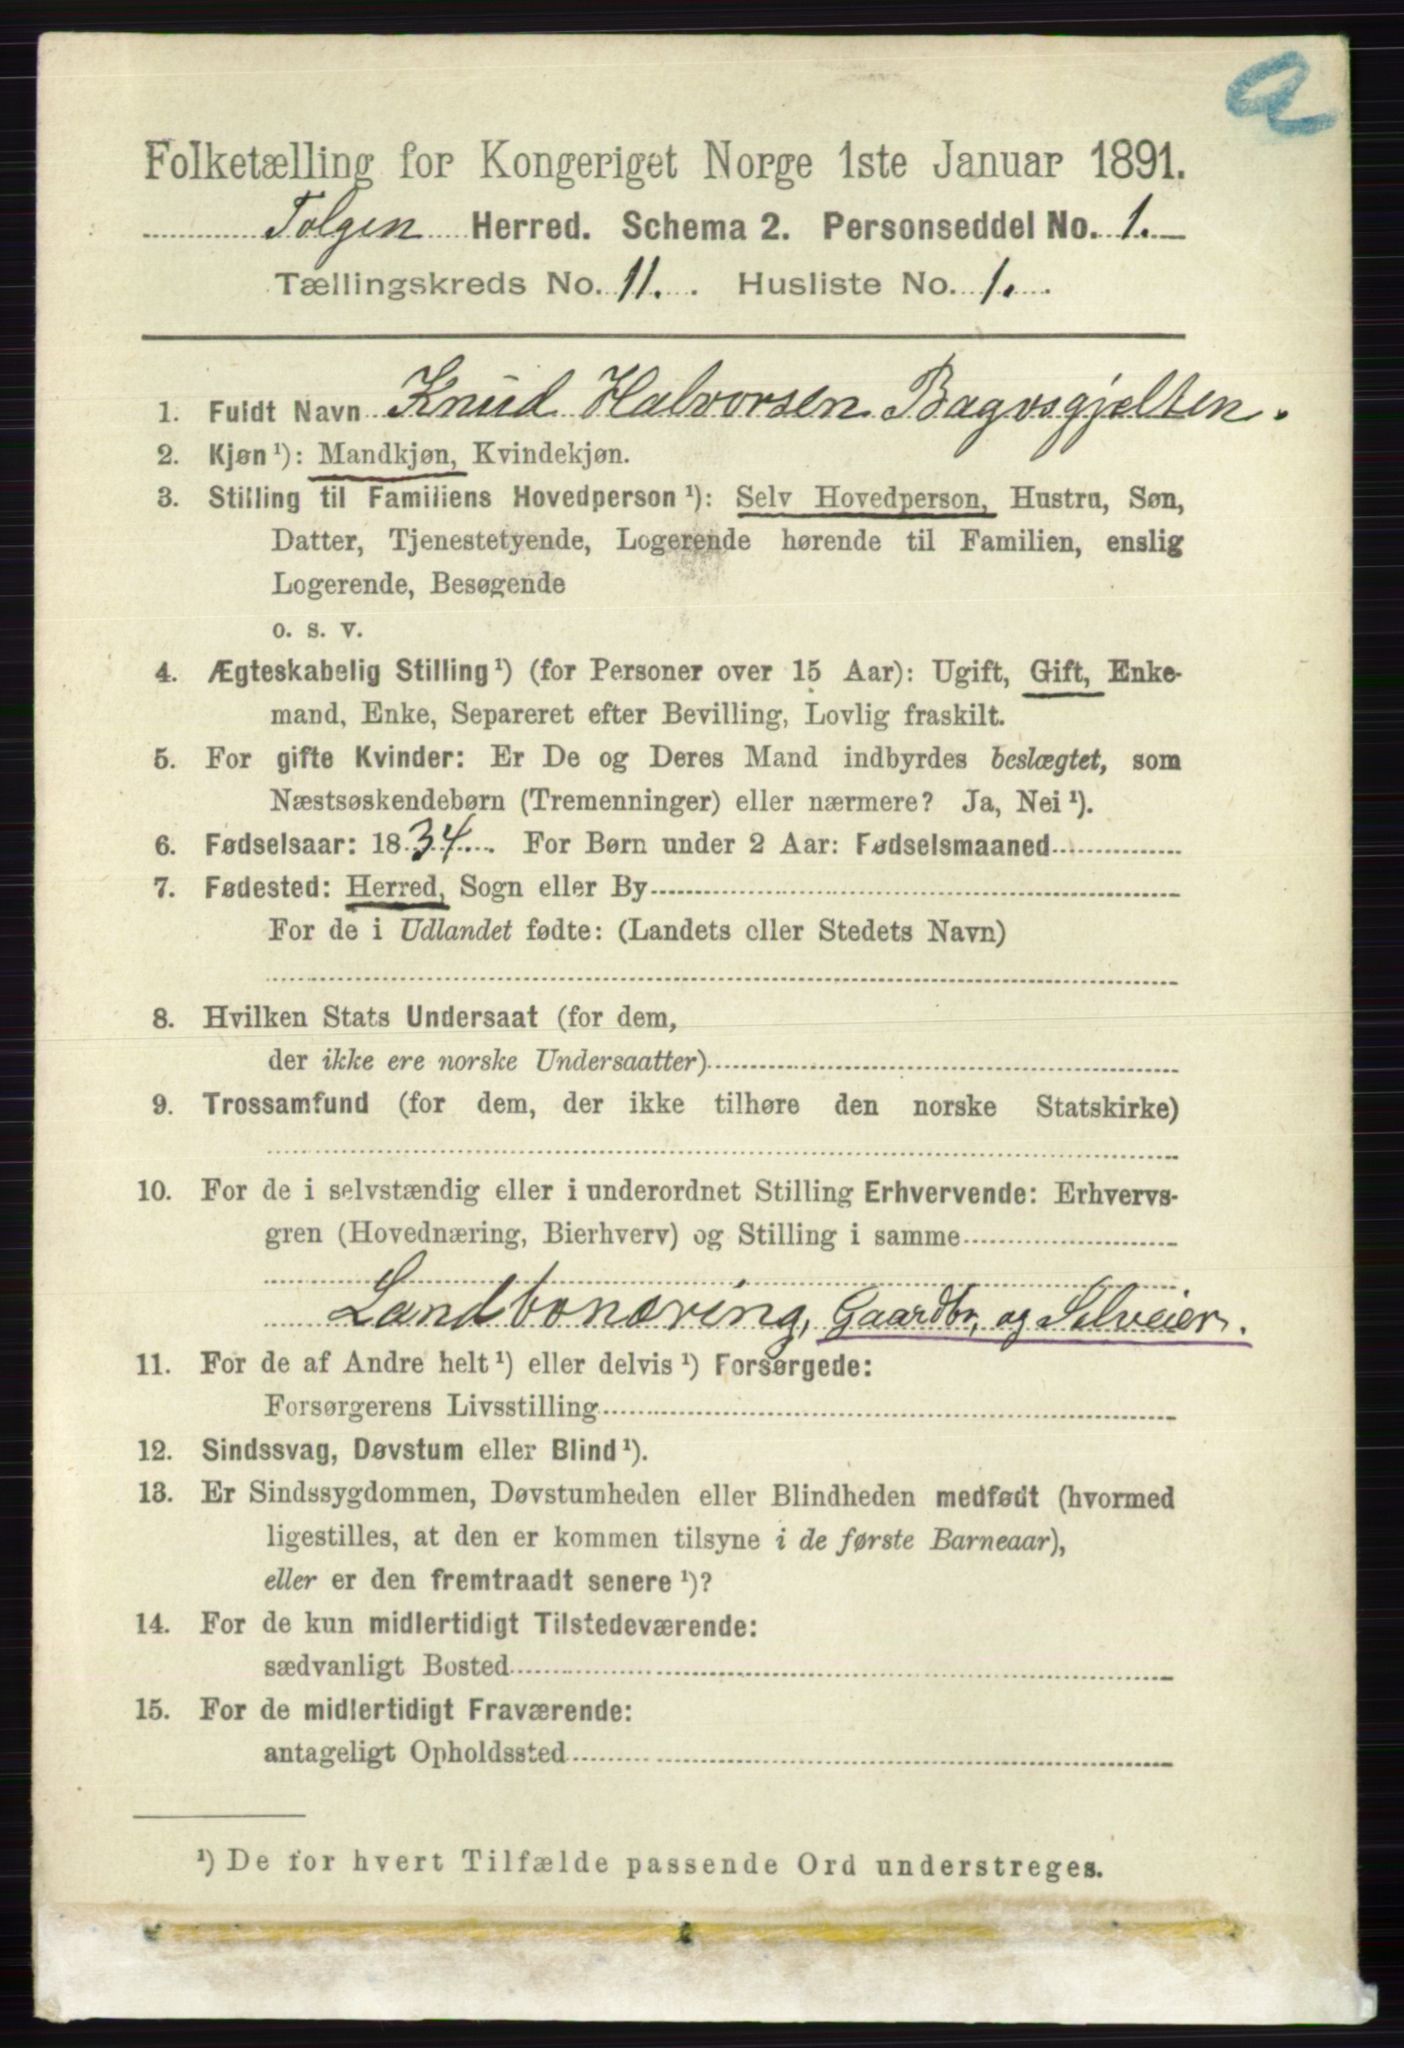 a
Folketælling for Kongeriget Norge 1ste Januar 1891.
Tolgen Herred. Schema 2. Personseddel No. 1.
Tællingskreds No. 11. Husliste No. 1.
1. Fuldt Navn Knud Halvorsen Bagvsgjelten.
2. Kjøn ¹): Mandkjøn, Kvindekjøn.
3. Stilling til Familiens Hovedperson ¹): Selv Hovedperson, Hustru, Søn,
Datter, Tjenestetyende, Logerende hørende til Familien, enslig
Logerende, Besøgende
o. s. v.
4. Ægteskabelig Stilling ¹) (for Personer over 15 Aar): Ugift, Gift, Enke-
mand, Enke, Separeret efter Bevilling, Lovlig fraskilt.
5. For gifte Kvinder: Er De og Deres Mand indbyrdes beslægtet, som
Næstsøskendebørn (Tremenninger) eller nærmere? Ja, Nei ¹).
6. Fødselsaar: 1834. For Børn under 2 Aar: Fødselsmaaned
7. Fødested: Herred, Sogn eller By
For de i Udlandet fødte: (Landets eller Stedets Navn)
8. Hvilken Stats Undersaat (for dem,
der ikke ere norske Undersaatter)
9. Trossamfund (for dem, der ikke tilhøre den norske Statskirke)
10. For de i selvstændig eller i underordnet Stilling Erhvervende: Erhvervs-
gren (Hovednæring, Bierhverv) og Stilling i samme
Landbonæring, Gaardbr, og Selveier.
11. For de af Andre helt ¹) eller delvis ¹) Forsørgede:
Forsørgerens Livsstilling
12. Sindssvag, Døvstum eller Blind ¹).
13. Er Sindssygdommen, Døvstumheden eller Blindheden medfødt (hvormed
ligestilles, at den er kommen tilsyne i de første Barneaar),
eller er den fremtraadt senere ¹)?
14. For de kun midlertidigt Tilstedeværende:
sædvanligt Bosted
15. For de midlertidigt Fraværende:
antageligt Opholdssted
¹) De for hvert Tilfælde passende Ord understreges.